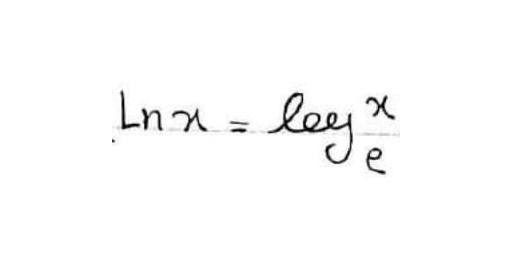 Ln x = log_e^x